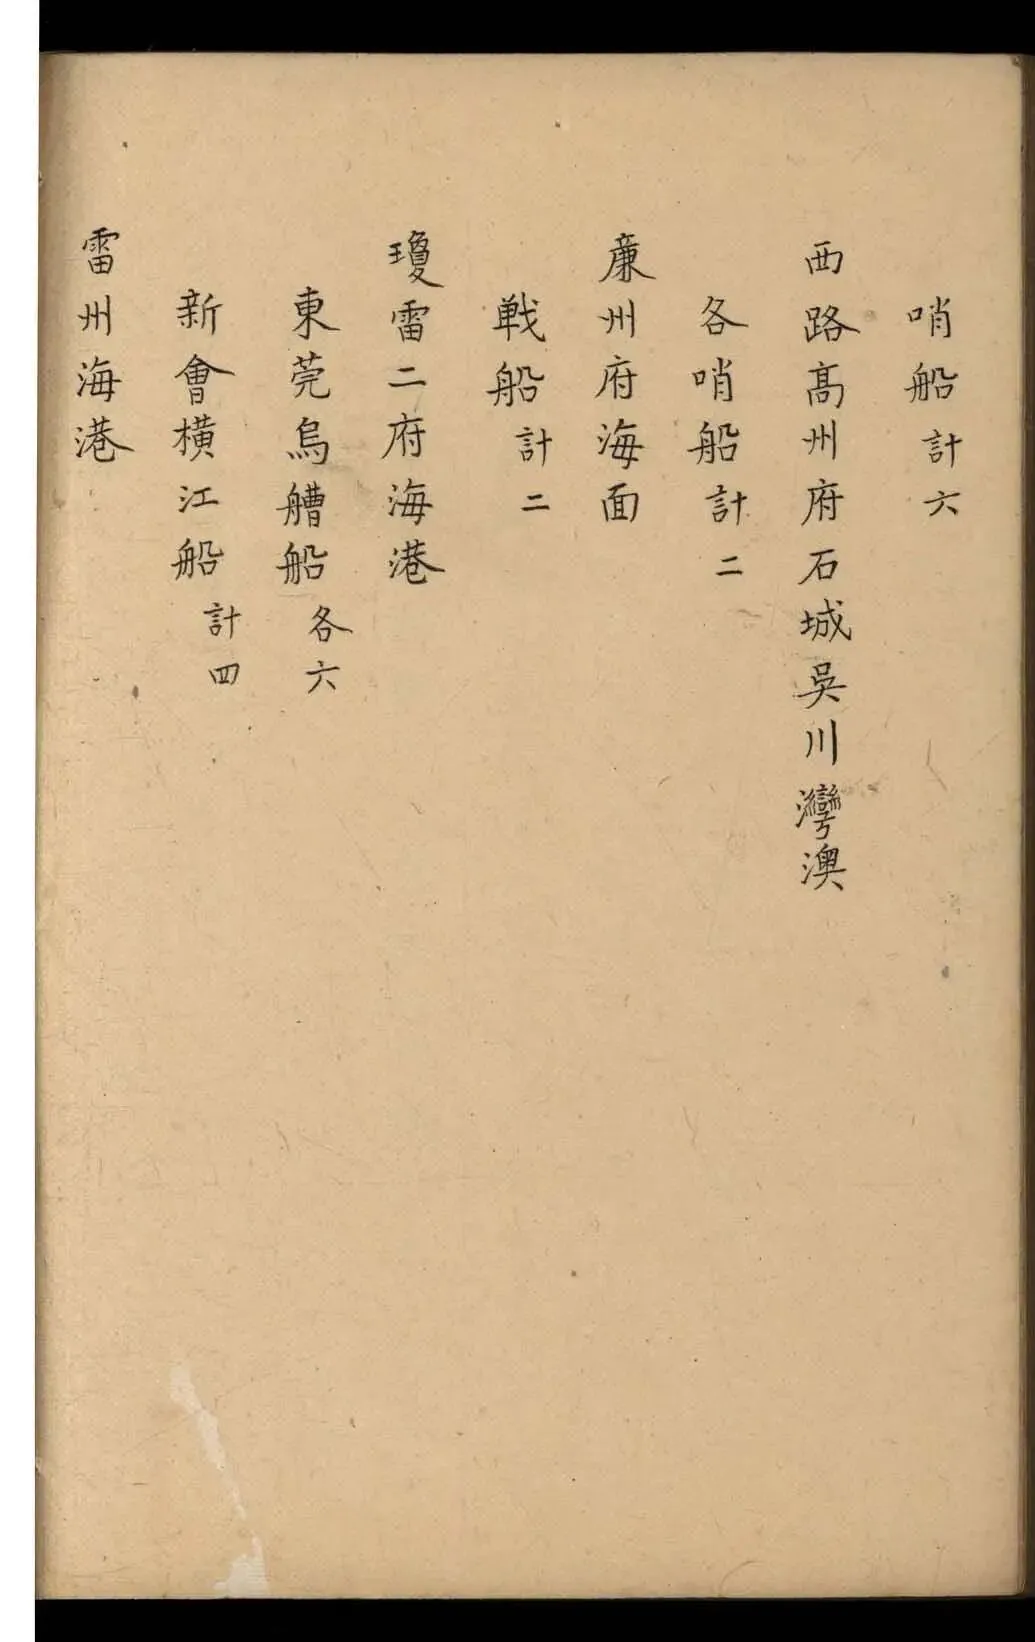 哨船計六
西路髙州府石城吳川灣澳
各哨船計二
亷州府海面
戦船計二
瓊雷二府海港
東莞烏艚船各六
新會橫江船計四
雷州海港